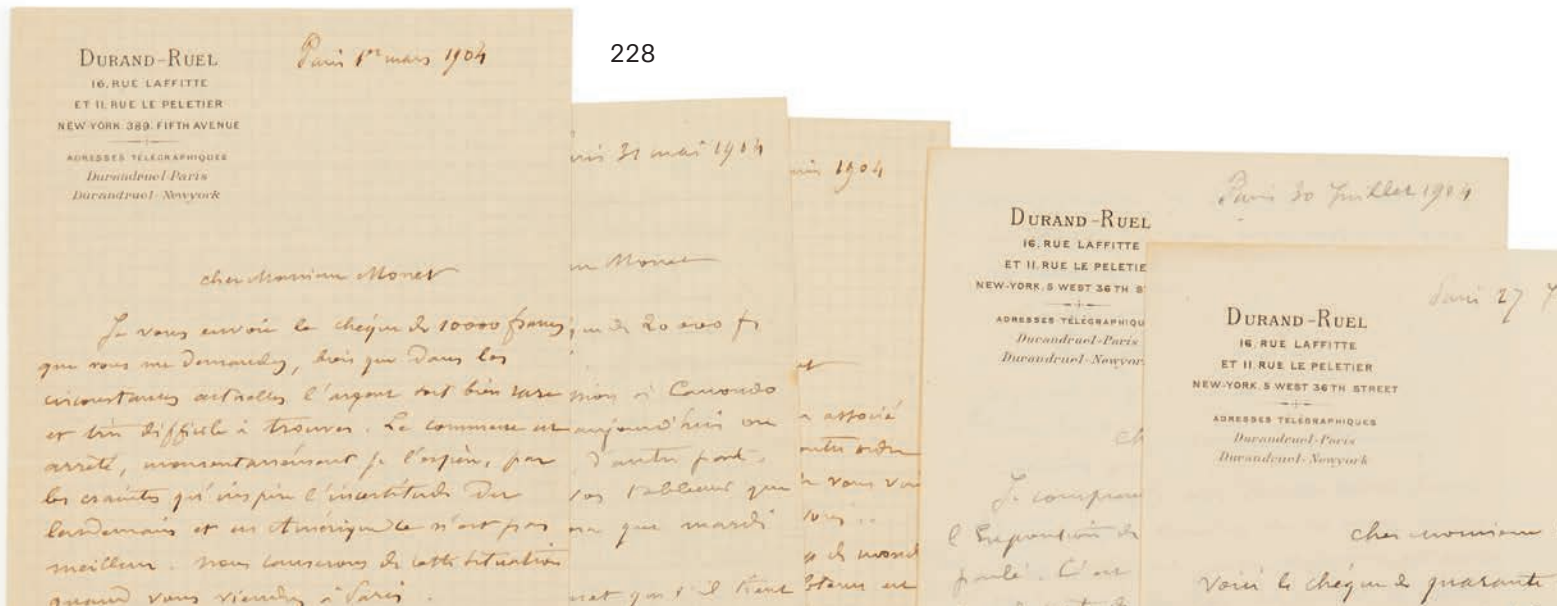 228
DURAND-RUEL
16, RUE LAFFITTE
ET 11, RUE LE PELETIER
NEW-YORK. 389. FIFTH AVENUE
ADRESSES TÉLÉGRAPHIQUES
Durandruel-Paris
Durandruel-Newyork
Paris 1er mars 1904
cher Monsieur Monet
Je vous envoie le chèque de 10000 francs
que vous me demandez, bien que dans les
circonstances actuelles l'argent soit bien rare
et très difficile à trouver. Le commerce est
arrêté, momentanément je l'espère, par
les craintes qu'inspire l'incertitude du
lendemain et en Amérique ce n'est pas
meilleur. nous causerons de cette situation
quand vous viendrez à Paris.
31 mai 1904
Monet
de 20 000 f
à Camondo
aujourd'hui ou
d'autre part.
tableaux que
que mardi
s'il tient
1904
associé
vous
DURAND-RUEL
16, RUE LAFFITTE
ET 11, RUE LE PELETIE
NEW-YORK. 5 WEST 36TH S
ADRESSES TÉLÉGRAPHIQU
Durandruel-Paris
Durandruel-Newyor
Paris 30 Juillet 1904
Ch
Je
l'Exposition de
parlé. C'est
DURAND-RUEL
16, RUE LAFFITTE
ET 11, RUE LE PELETIER
NEW-YORK. 5 WEST 36TH STREET
ADRESSES TÉLÉGRAPHIQUES
Durandruel-Paris
Durandruel-Newyork
Paris 27
cher monsieur
Voici le chèque de quarante